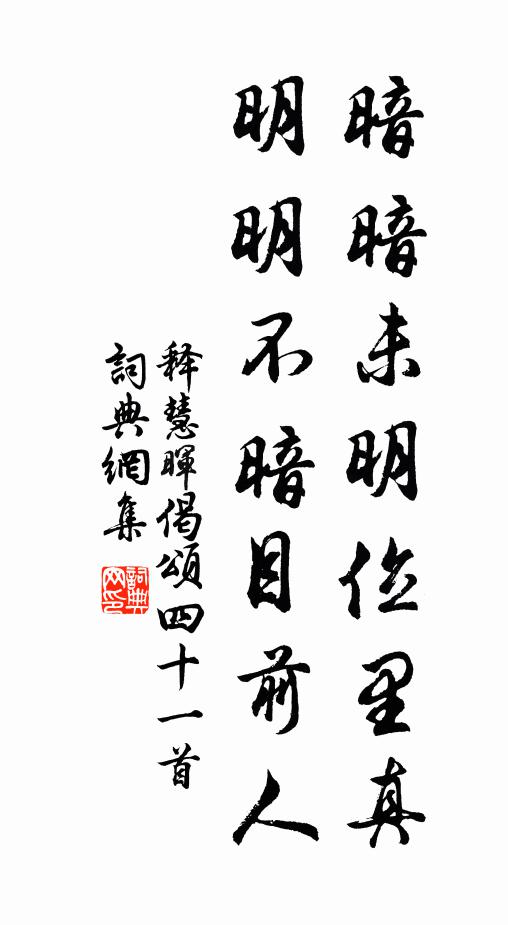 暗暗未明位里真
明明不暗目前人
释慧暉偈頌四十一首
詞典網集
詞典网印